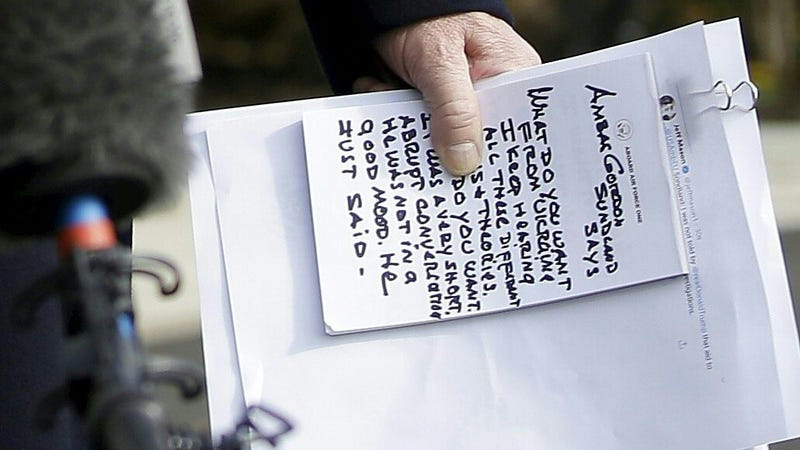 ABOARD AIR FORCE ONE
AMBAS GORDON
SUNDLAND
SAYS
WHAT DO YOU WANT
FROM
I KEEP HEARING
ALL THESE DIFFERENT
S & THEORIES
DO YOU WANT.
IT WAS A VERY SHORT.
ABRUPT CONVERSATION
HE WAS NOT IN A
GOOD MOOD. HE
JUST SAID -
Jeff Mason @jeffmason1
Sondland: I was not told by @realDonaldTrump that aid to